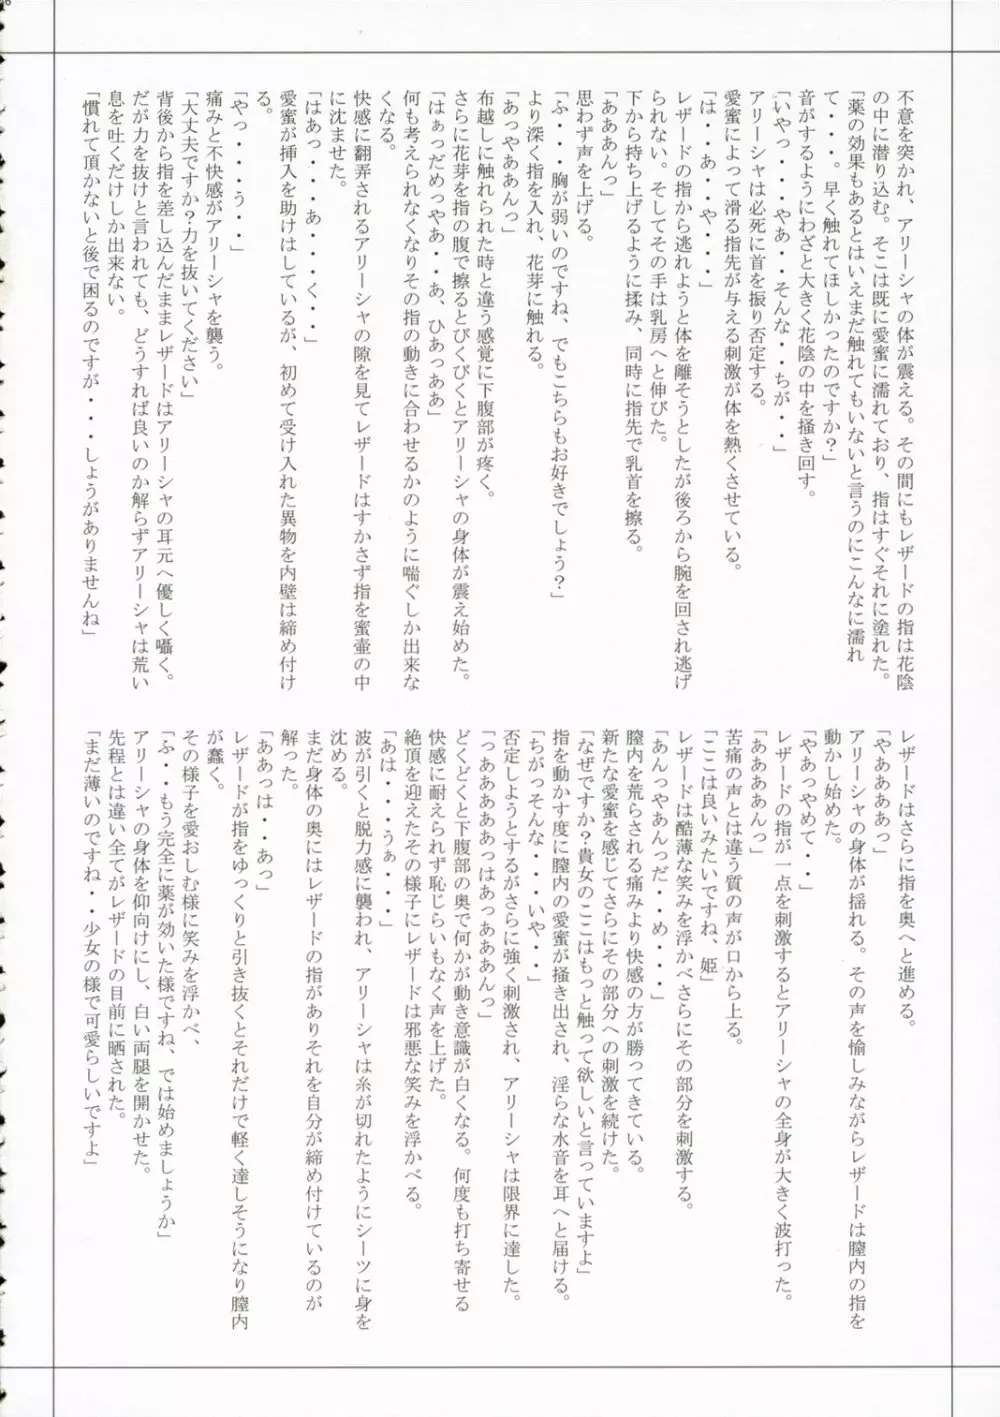 不意を突かれ、アリーシャの体が震える。その間にもレザードの指は花陰
の中に潜り込む。そこは既に愛蜜に濡れており、指はすぐそれに塗れた。
「薬の効果もあるとはいえまだ触れてもいないと言うのにこんなに濡れ
て・・・。早く触れてほしかったのですか？」
音がするようにわざと大きく花陰の中を掻き回す。
「いやっ・・・やあ・・そんな・・ちが・・」
アリーシャは必死に首を振り否定する。
愛蜜によって滑る指先が与える刺激が体を熱くさせている。
「は・・・あ・・や・・・」
レザードの指から逃れようと体を離そうとしたが後ろから腕を回され逃げ
られない。そしてその手は乳房へと伸びた。
下から持ち上げるように揉み、同時に指先で乳首を擦る。
「あああんっ」
思わず声を上げる。
「ふ・・・胸が弱いのですね、でもこちらもお好きでしょう？」
より深く指を入れ、花芽に触れる。
「あっやああんっ」
布越しに触れられた時と違う感覚に下腹部が疼く。
さらに花芽を指の腹で擦るとびくびくとアリーシャの身体が震え始めた。
「はぁっだめっやあ・・あ、ひあっああ」
何も考えられなくなりその指の動きに合わせるかのように喘ぐしか出来な
くなる。
快感に翻弄されるアリーシャの隙を見てレザードはすかさず指を蜜壷の中
に沈ませた。
「はあっ・・・あ・・・く・・」
愛蜜が挿入を助けはしているが、初めて受け入れた異物を内壁は締め付け
る。
「やっ・・・う・・」
痛みと不快感がアリーシャを襲う。
「大丈夫ですか？力を抜いてください」
背後から指を差し込んだままレザードはアリーシャの耳元へ優しく囁く。
だが力を抜けと言われても、どうすれば良いのか解らずアリーシャは荒い
息を吐くだけしか出来ない。
「慣れて頂かないと後で困るのですが・・・しょうがありませんね」
レザードはさらに指を奥へと進める。
「やああああっ」
アリーシャの身体が揺れる。その声を愉しみながらレザードは膣内の指を
動かし始めた。
「やあっやめて・・」
レザードの指が一点を刺激するとアリーシャの全身が大きく波打った。
「ああああんっ」
苦痛の声とは違う質の声が口から上る。
「ここは良いみたいですね、姫」
レザードは酷薄な笑みを浮かべさらにその部分を刺激する。
「あんっやあんっだ・・め・・・」
膣内を荒らされる痛みより快感の方が勝ってきている。
新たな愛蜜を感じてさらにその部分への刺激を続けた。
「なぜですか？貴女のここはもっと触って欲しいと言っていますよ」
指を動かす度に膣内の愛蜜が掻き出され、淫らな水音を耳へと届ける。
「ちがっそんな・・・いや・・」
否定しようとするがさらに強く刺激され、アリーシャは限界に達した。
「っああああああっはあっあああんっ」
どくどくと下腹部の奥で何かが動き意識が白くなる。何度も打ち寄せる
快感に耐えられず恥じらいもなく声を上げた。
絶頂を迎えたその様子にレザードは邪悪な笑みを浮かべる。
「あは・・・うぁ・・・」
波が引くと脱力感に襲われ、アリーシャは糸が切れたようにシーツに身を
沈める。
まだ身体の奥にはレザードの指がありそれを自分が締め付けているのが
解った。
「ああっは・・あっ」
レザードが指をゆっくりと引き抜くとそれだけで軽く達しそうになり膣内
が蠢く。
その様子を愛おしむ様に笑みを浮かべ、
「ふ・・もう完全に薬が効いた様ですね、では始めましょうか」
アリーシャの身体を仰向けにし、白い両腿を開かせた。
先程とは違い全てがレザードの目前に晒された。
「まだ薄いのですね・・少女の様で可愛らしいですよ」